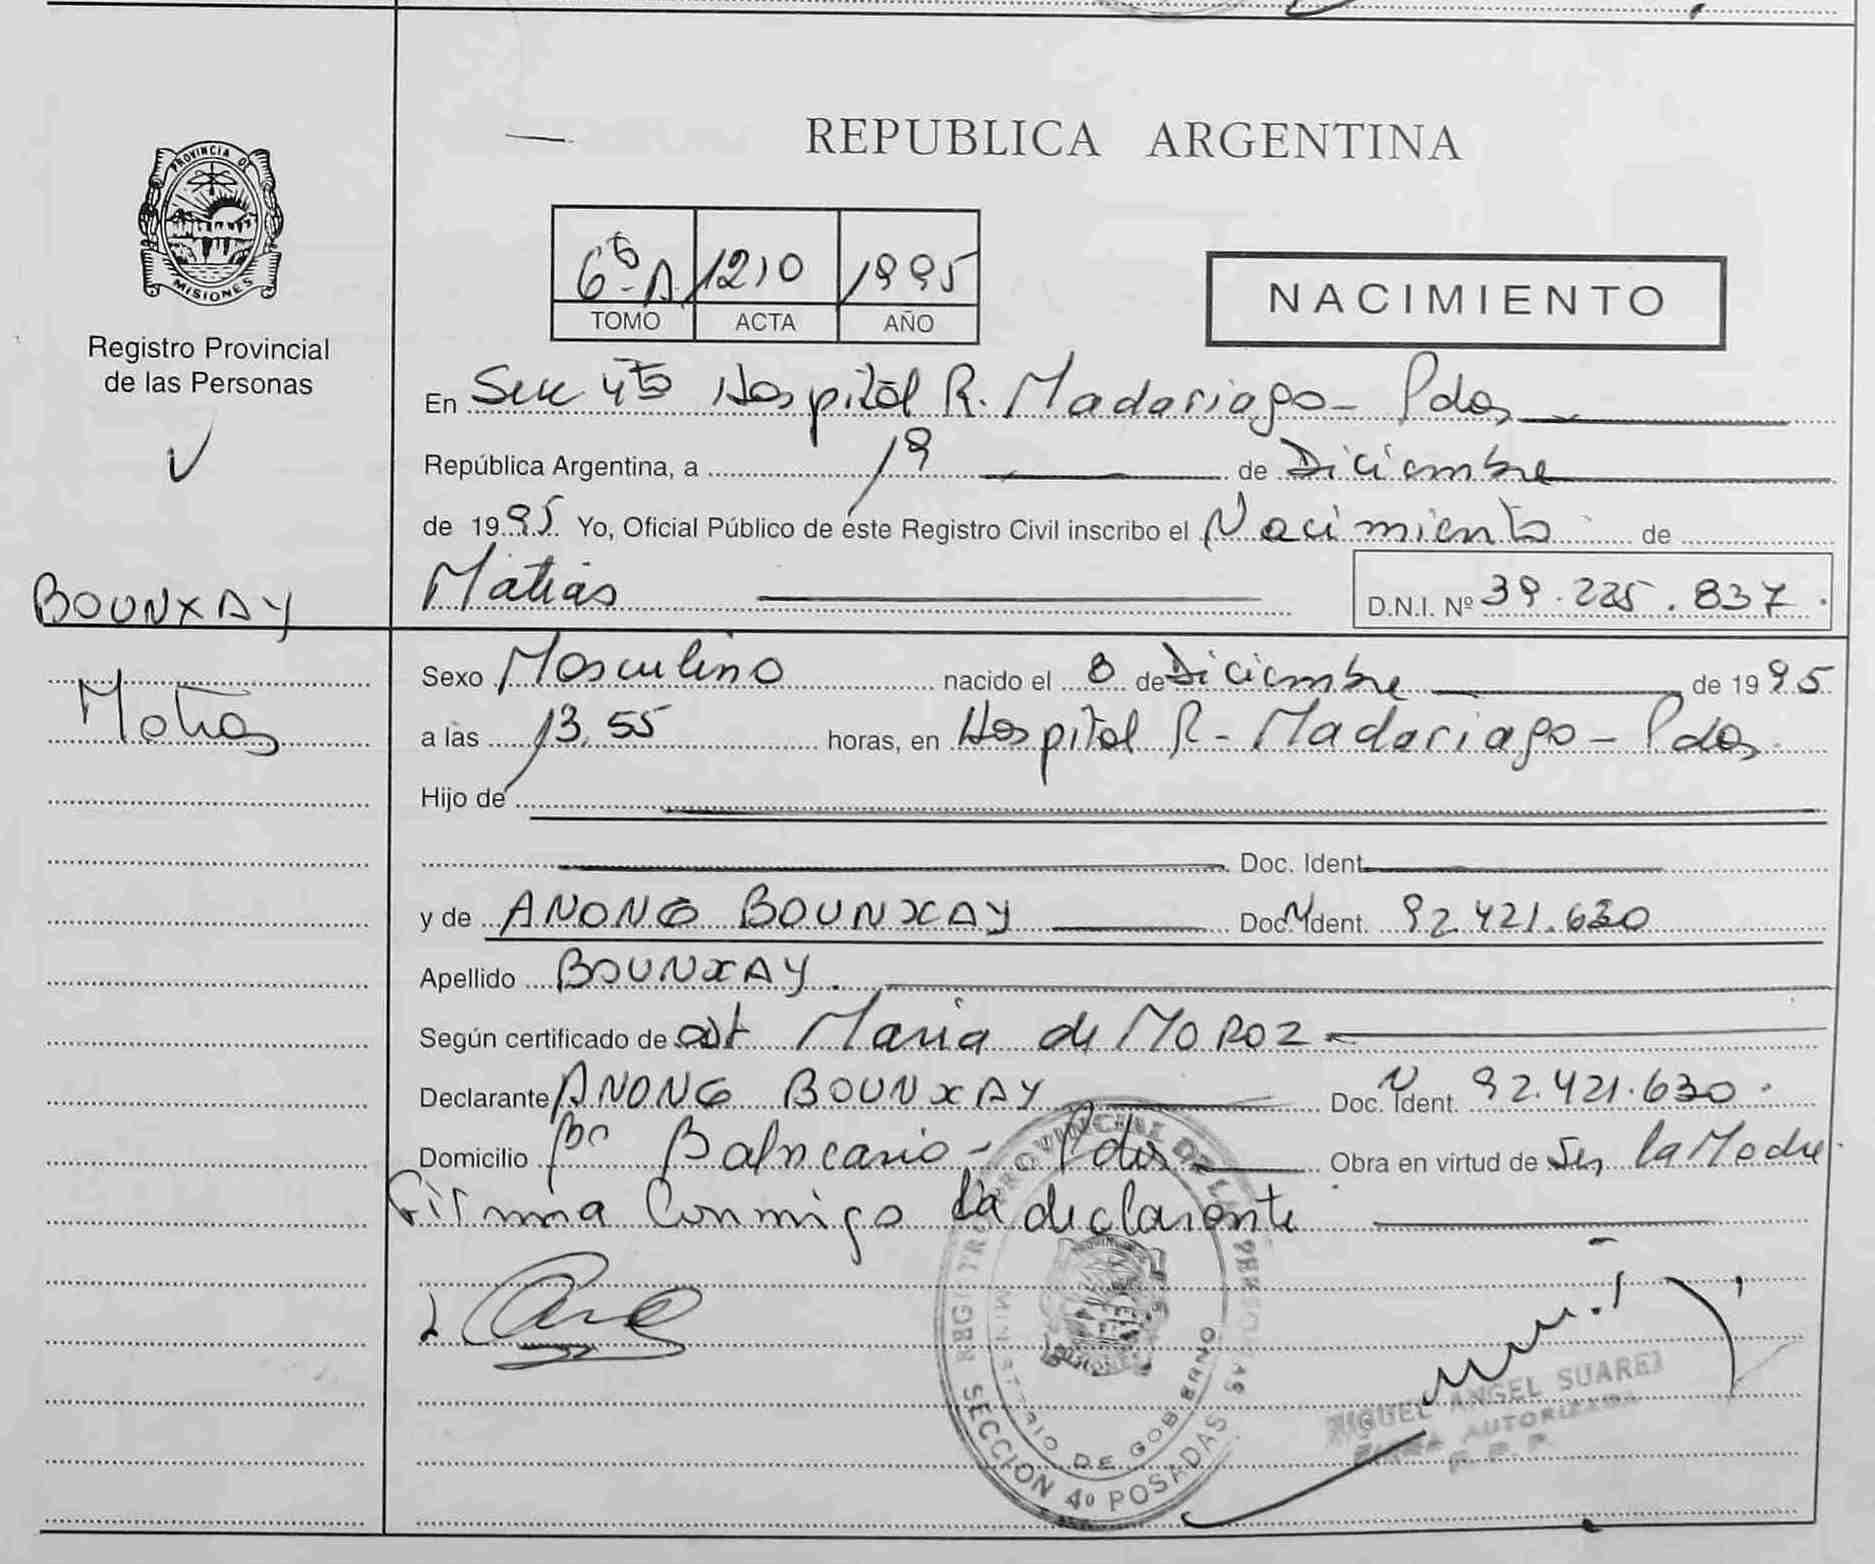 REPUBLICA ARGENTINA
PROVINCIA DE
MISIONES
Registro Provincial
de las Personas
6to A 1210 1995
TOMO ACTA AÑO
NACIMIENTO
En Secc 4ta Hospital R. Madariaga - Pdas
República Argentina, a 19 de Diciembre
de 1995 Yo, Oficial Público de este Registro Civil inscribo el Nacimiento de
Matias D.N.I. Nº 39.225.837.
BOUNXAY
Matias
Sexo Masculino nacido el 8 de Diciembre de 1995
a las 13,55 horas, en Hospital R - Madariaga - Pdas
Hijo de
Doc. Ident.
y de ANONG BOUNXAY Doc. Ident. N 92.421.630
Apellido BOUNXAY.
Según certificado de obt Maria de MOROZ
Declarante ANONG BOUNXAY Doc. Ident. N 92.421.630.
Domicilio Bo Balneario - Pdas Obra en virtud de Ser la Madre.
Firma Conmigo la declarante
REGISTRO PROVINCIAL DE LAS PERSONAS
MINISTERIO DE GOBIERNO
SECCION 4º POSADAS
MIGUEL ANGEL SUAREZ
FIRMA AUTORIZADA
R. P. P.